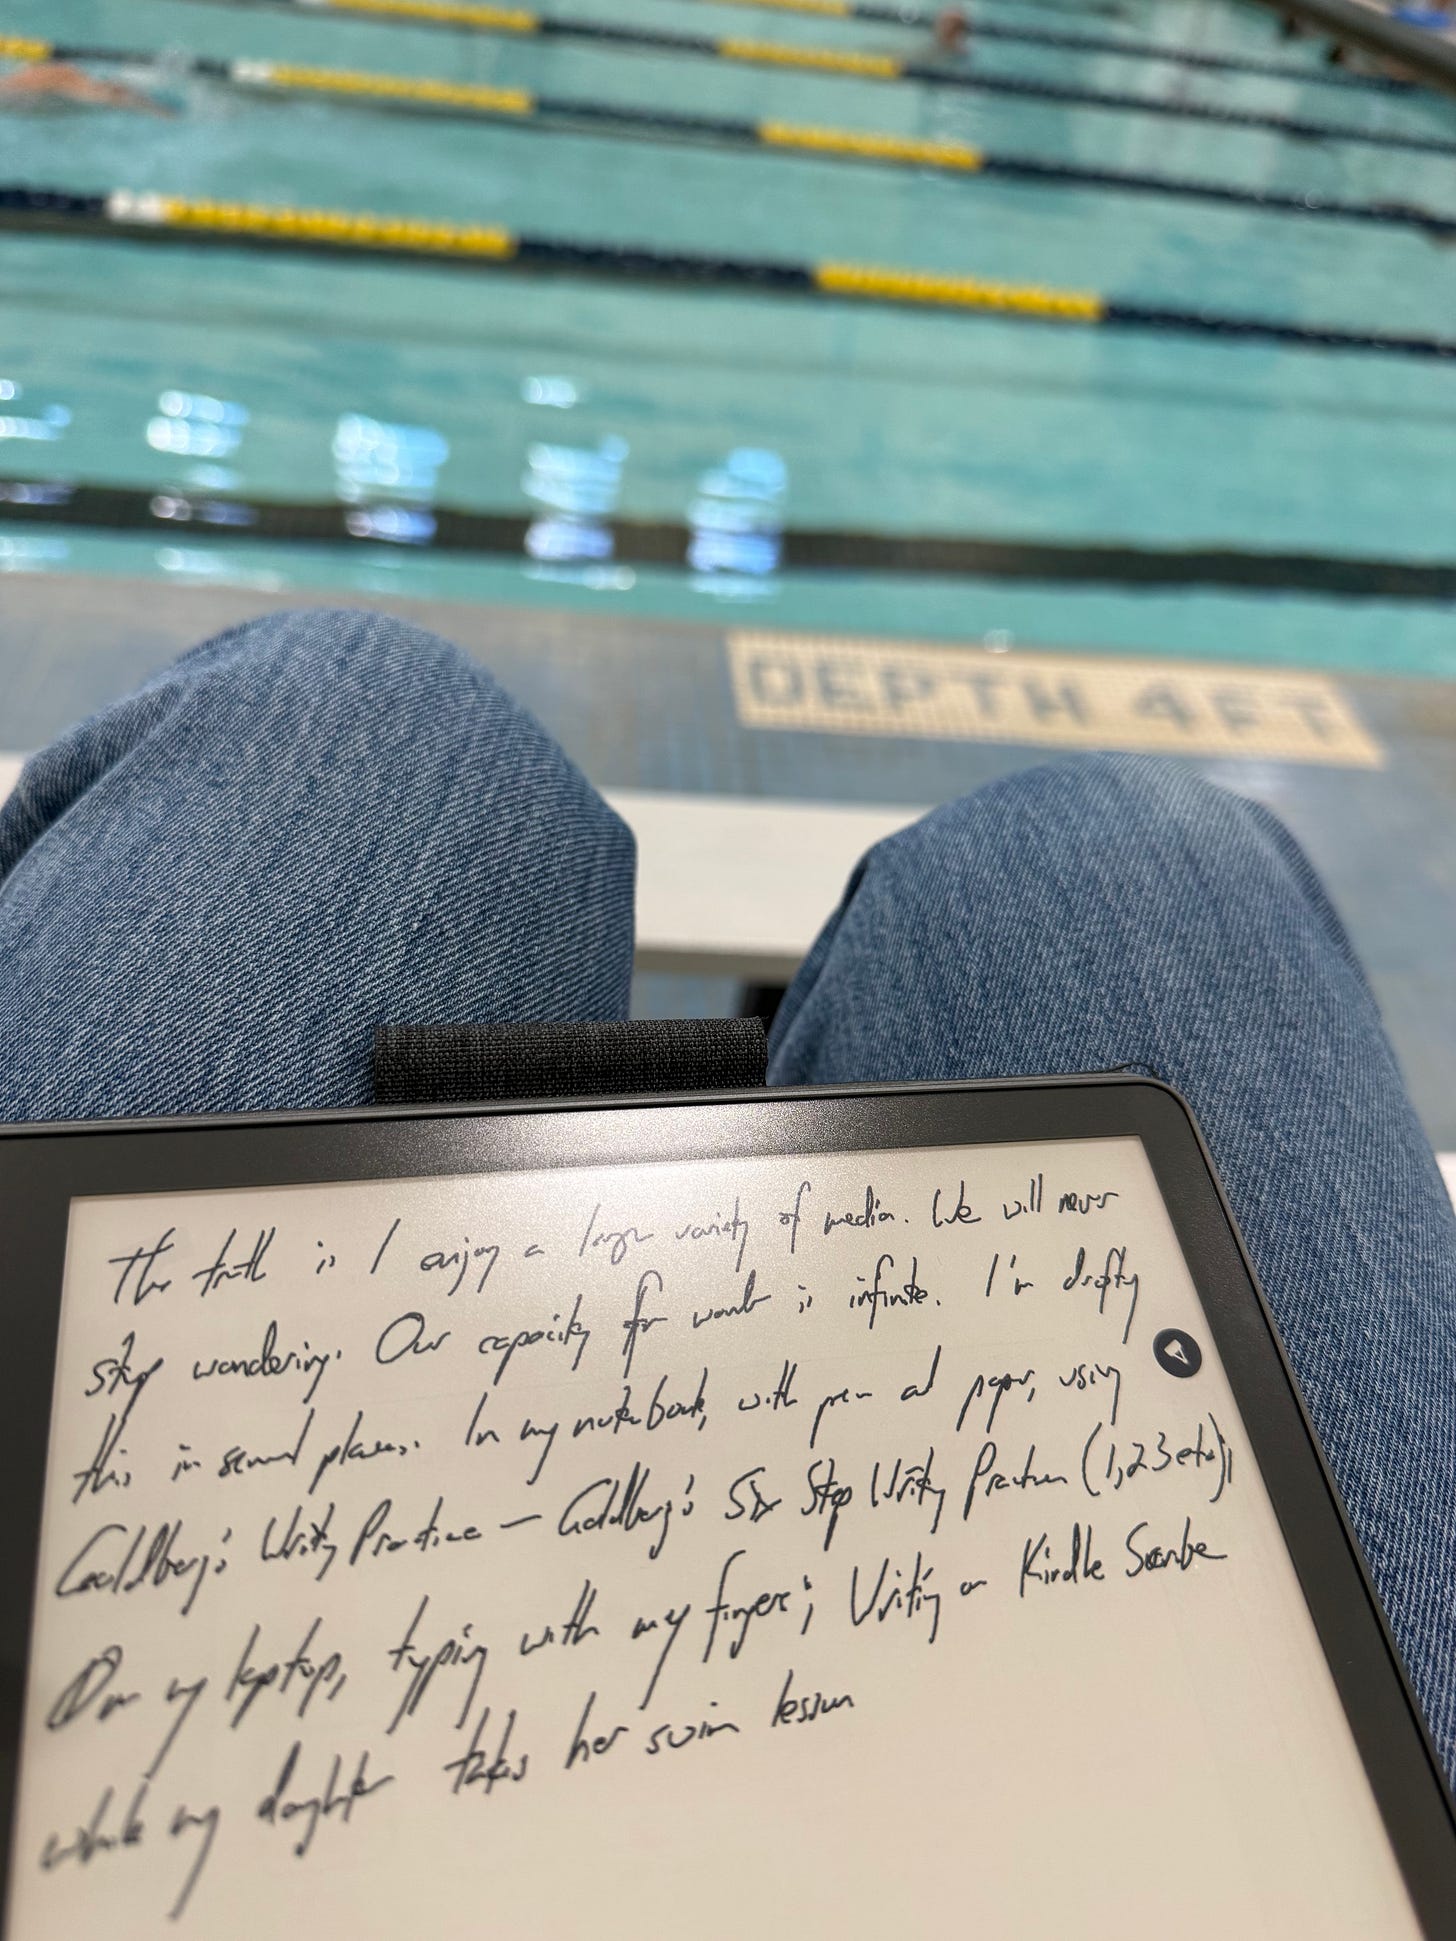 DEPTH 4FT
The truth is I enjoy a large variety of media. We will never
stop wandering. Our capacity for want is infinite. I'm drafting
this in several places. In my notebook, with pen and paper, using
Goldberg's Writing Practice — Goldberg's Six Step Writing Practice (1, 2, 3 etc);
On my laptop, typing with my fingers; Writing on Kindle Scribe
while my daughter takes her swim lesson